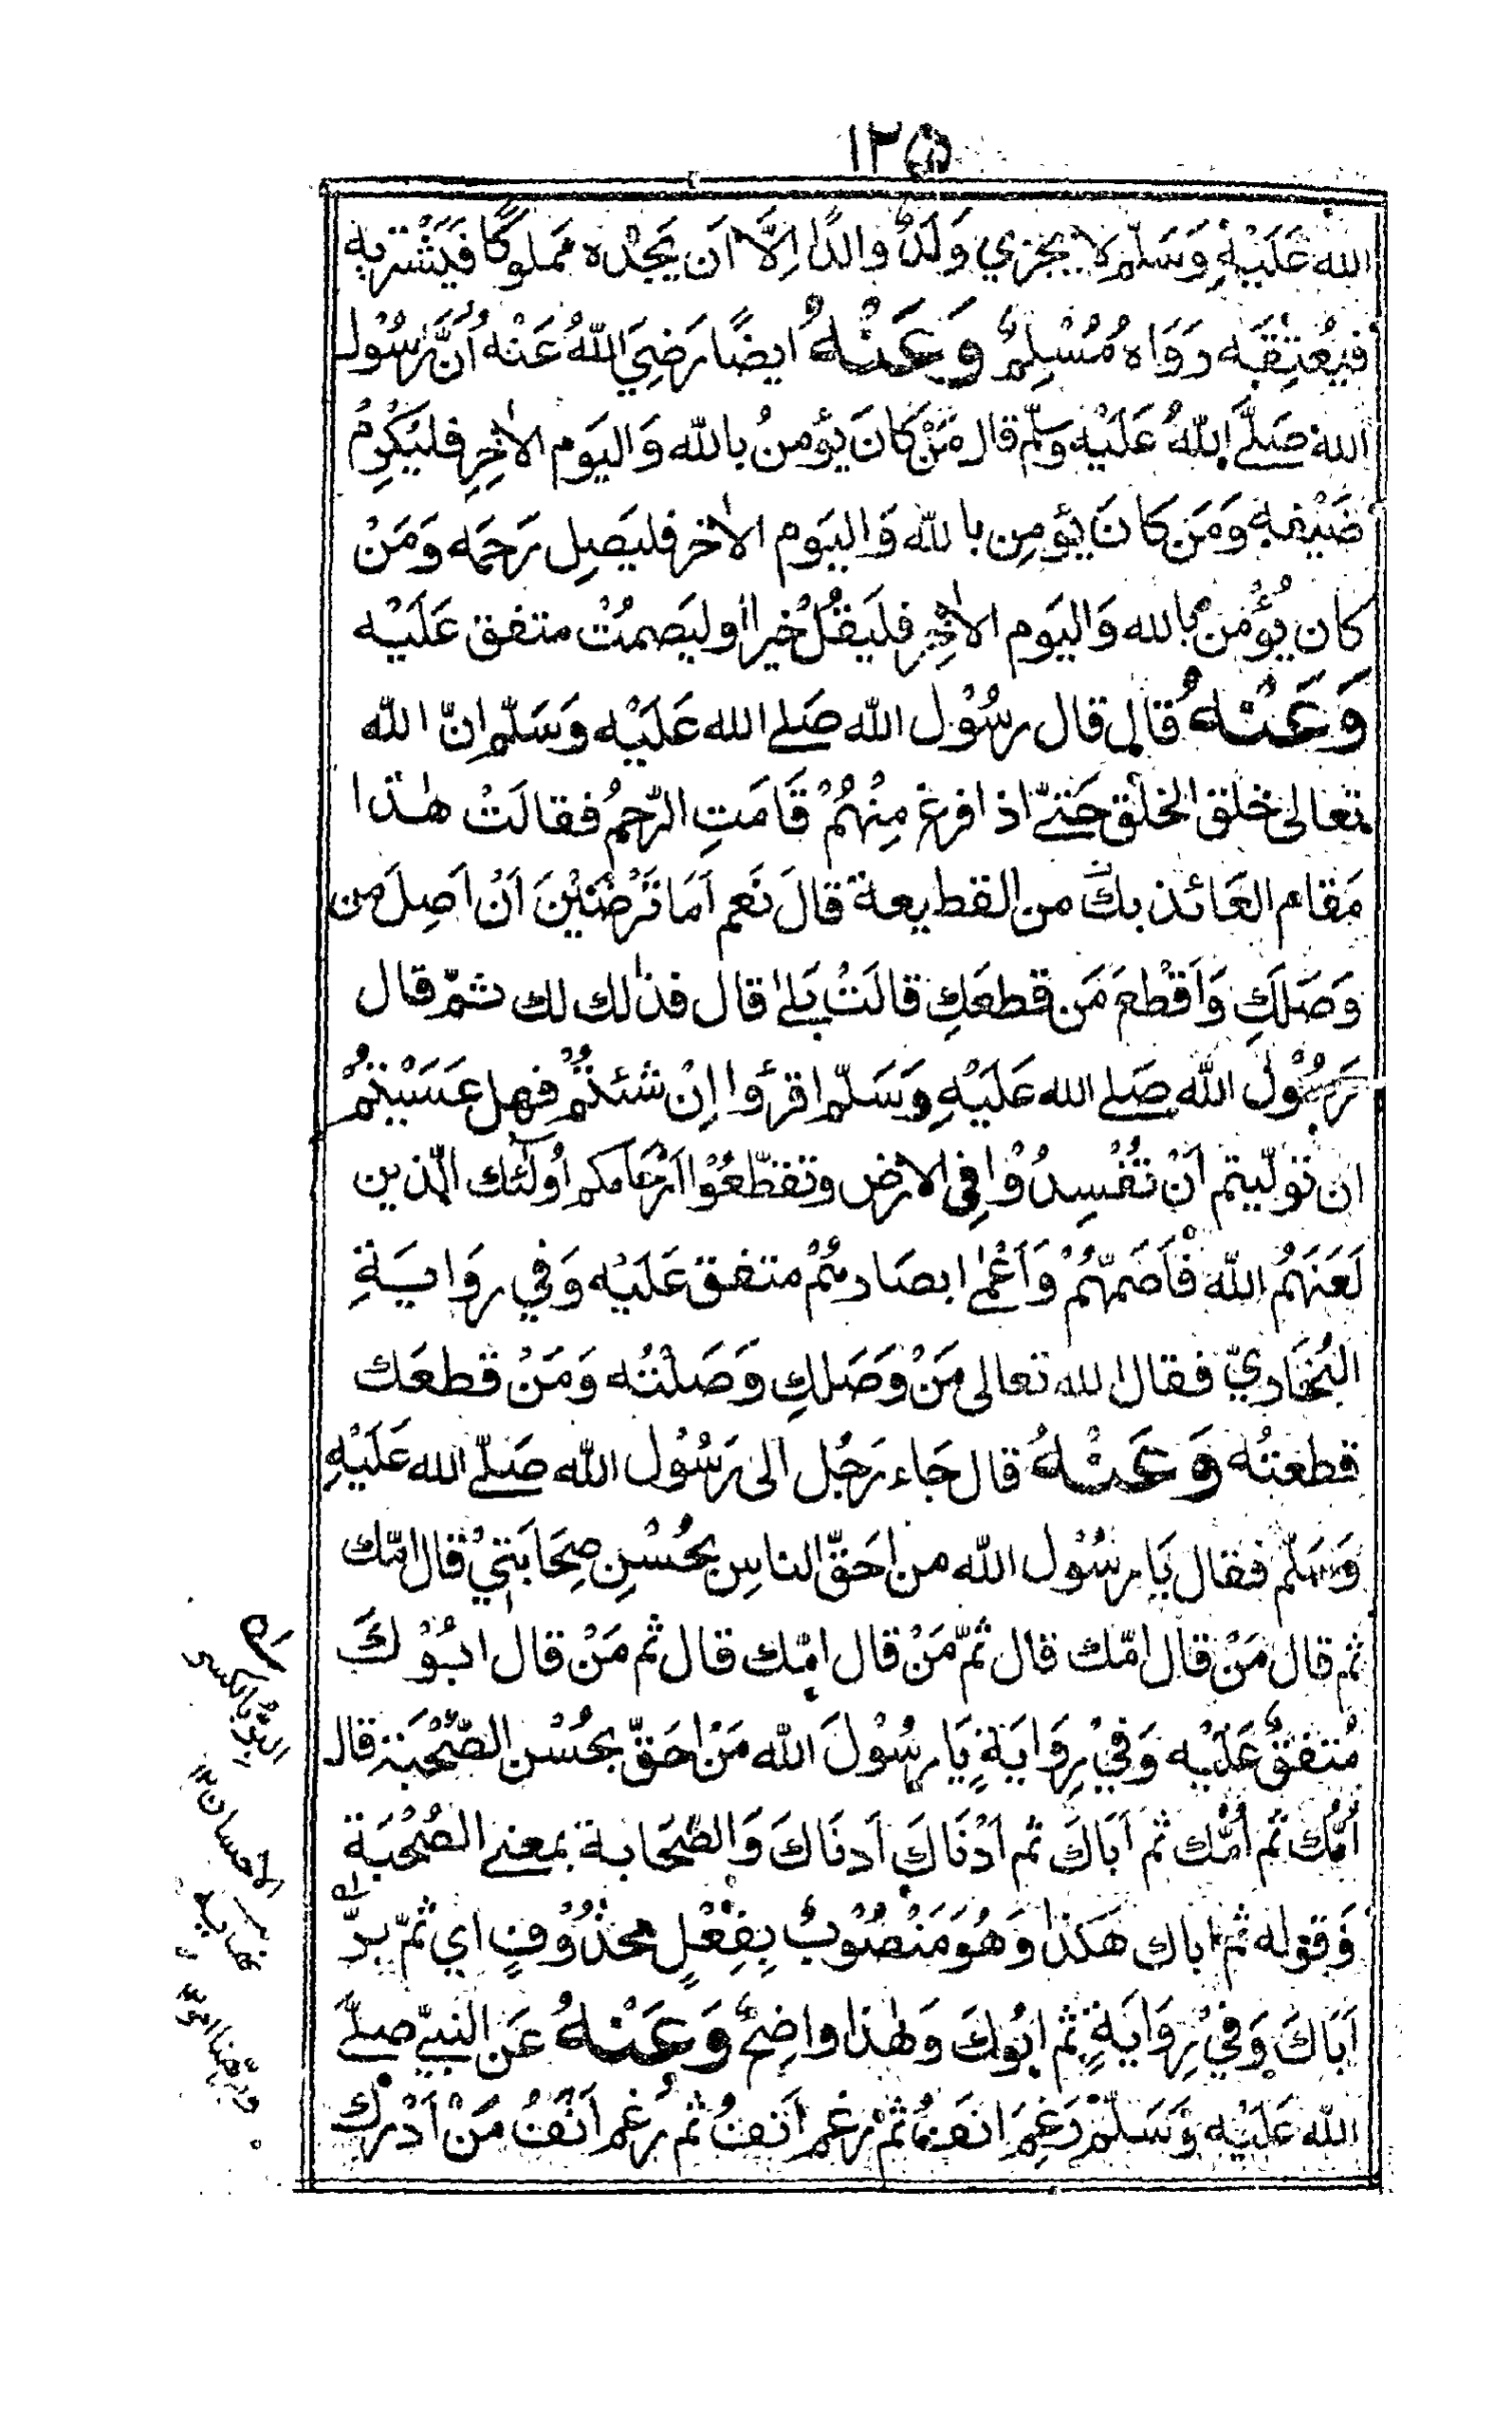 ١٢٥
الله عَلَيْهِ وَسَلّم لا يجزي وَلَدٌ والدًا اِلَّا اَن يَجْدَه مَملوكًا فَيَشْتَريه
فيُعْتِقَه رَوَاه مُسْلِمٌ وَعَنْهُ ايضًا رَضِيَ اللهُ عَنْه اَنَّ رَسُوْل
الله صَلَّى اللهُ عَلَيْه وسلّم قال مَنْ كَانَ يؤمنُ بالله وَاليَوم الاٰخِرِ فليُكْرِمْ
ضَيْفه وَمَن كانَ يؤمِن بالله وَاليَوم الاٰخر فليَصِل رَحِمَه وَمَنْ
كان يُؤْمن بالله وَاليَوم الاٰخِرِ فليَقُلْ خيرا اوليَصمُتْ متفق عَلَيْه
وَعَنْهُ قال قال رسُوْل الله صَلى الله عَلَيْه وَسَلّم انّ الله
تعالى خلق الخلق حَتىّ اذا فرغ مِنْهُمْ قَامَتِ الرّحمُ فقالَتْ هٰذا
مَقام العَائذ بك من القطيعة قالَ نَعم اَمَا تَرْضَيْنَ اَنْ اَصِلَ من
وَصَلَكِ وَاَقْطعَ مَن قطعَكِ قالَتْ بَلىٰ قال فذٰلك لك ثمّ قال
رَسُوْلُ الله صَلى الله عَلَيْهِ وَسَلّم اقرؤا اِنْ شئتمْ فهل عَسَيْتمْ
ان تولّيتم اَنْ تُفْسِدُوْا فِى الارض وتقطّعُوْا اَرْحَامكم اُولٰٓئك الّذين
لَعَنَهُم الله فَاَصَمّهُمْ وَاَعْمىٰ ابصارهُمْ متفق عَلَيْه وَفي روَايَةِ
البُخَاريّ فقال الله تعالى مَنْ وَصَلكِ وَصَلْتُه وَمَنْ قطعَك
قطعتُه وَعَنْهُ قال جَاء رَجُل الى رَسُوْل الله صَلّى الله عَلَيْهِ
وَسَلّم فقال يَا رسُوْل الله من اَحَقّ الناسِ بحُسْنِ صِحَابَتِيْ قال امّك
ثم قال مَنْ قال امّك قال ثمّ مَنْ قال امّك قال ثم مَنْ قال ابُوْكَ
مُتفقٌ عَلَيْه وَفيْ رِوَايَةٍ يَا رسُوْلَ الله مَنْ اَحَقّ بحُسْن الصُّحْبَة قال
اُمُّك ثم اُمّك ثم اَبَاكَ ثم اَدْنَاكَ اَدنَاكَ وَالصَّحَابة بمعنى الصُحْبَة
وَقوله ثم اباك هَكذا وَهُوَ مَنْصُوْبٌ بِفِعْلٍ محذُوْفٍ اي ثمّ برَّ
اَبَاكَ وَفيْ رِوَايَةٍ ثم ابُوكَ وَهٰذا واضِحٌ وَعَنْهُ عَن النبيّ صلّى
الله عَلَيْه وَسَلّمْ رَغِمَ انفُ ثمْ رَغم اَنفُ ثم رَغم اَنْفُ مَنْ اَدْرَك
البرّ بالكسر
الاحسان